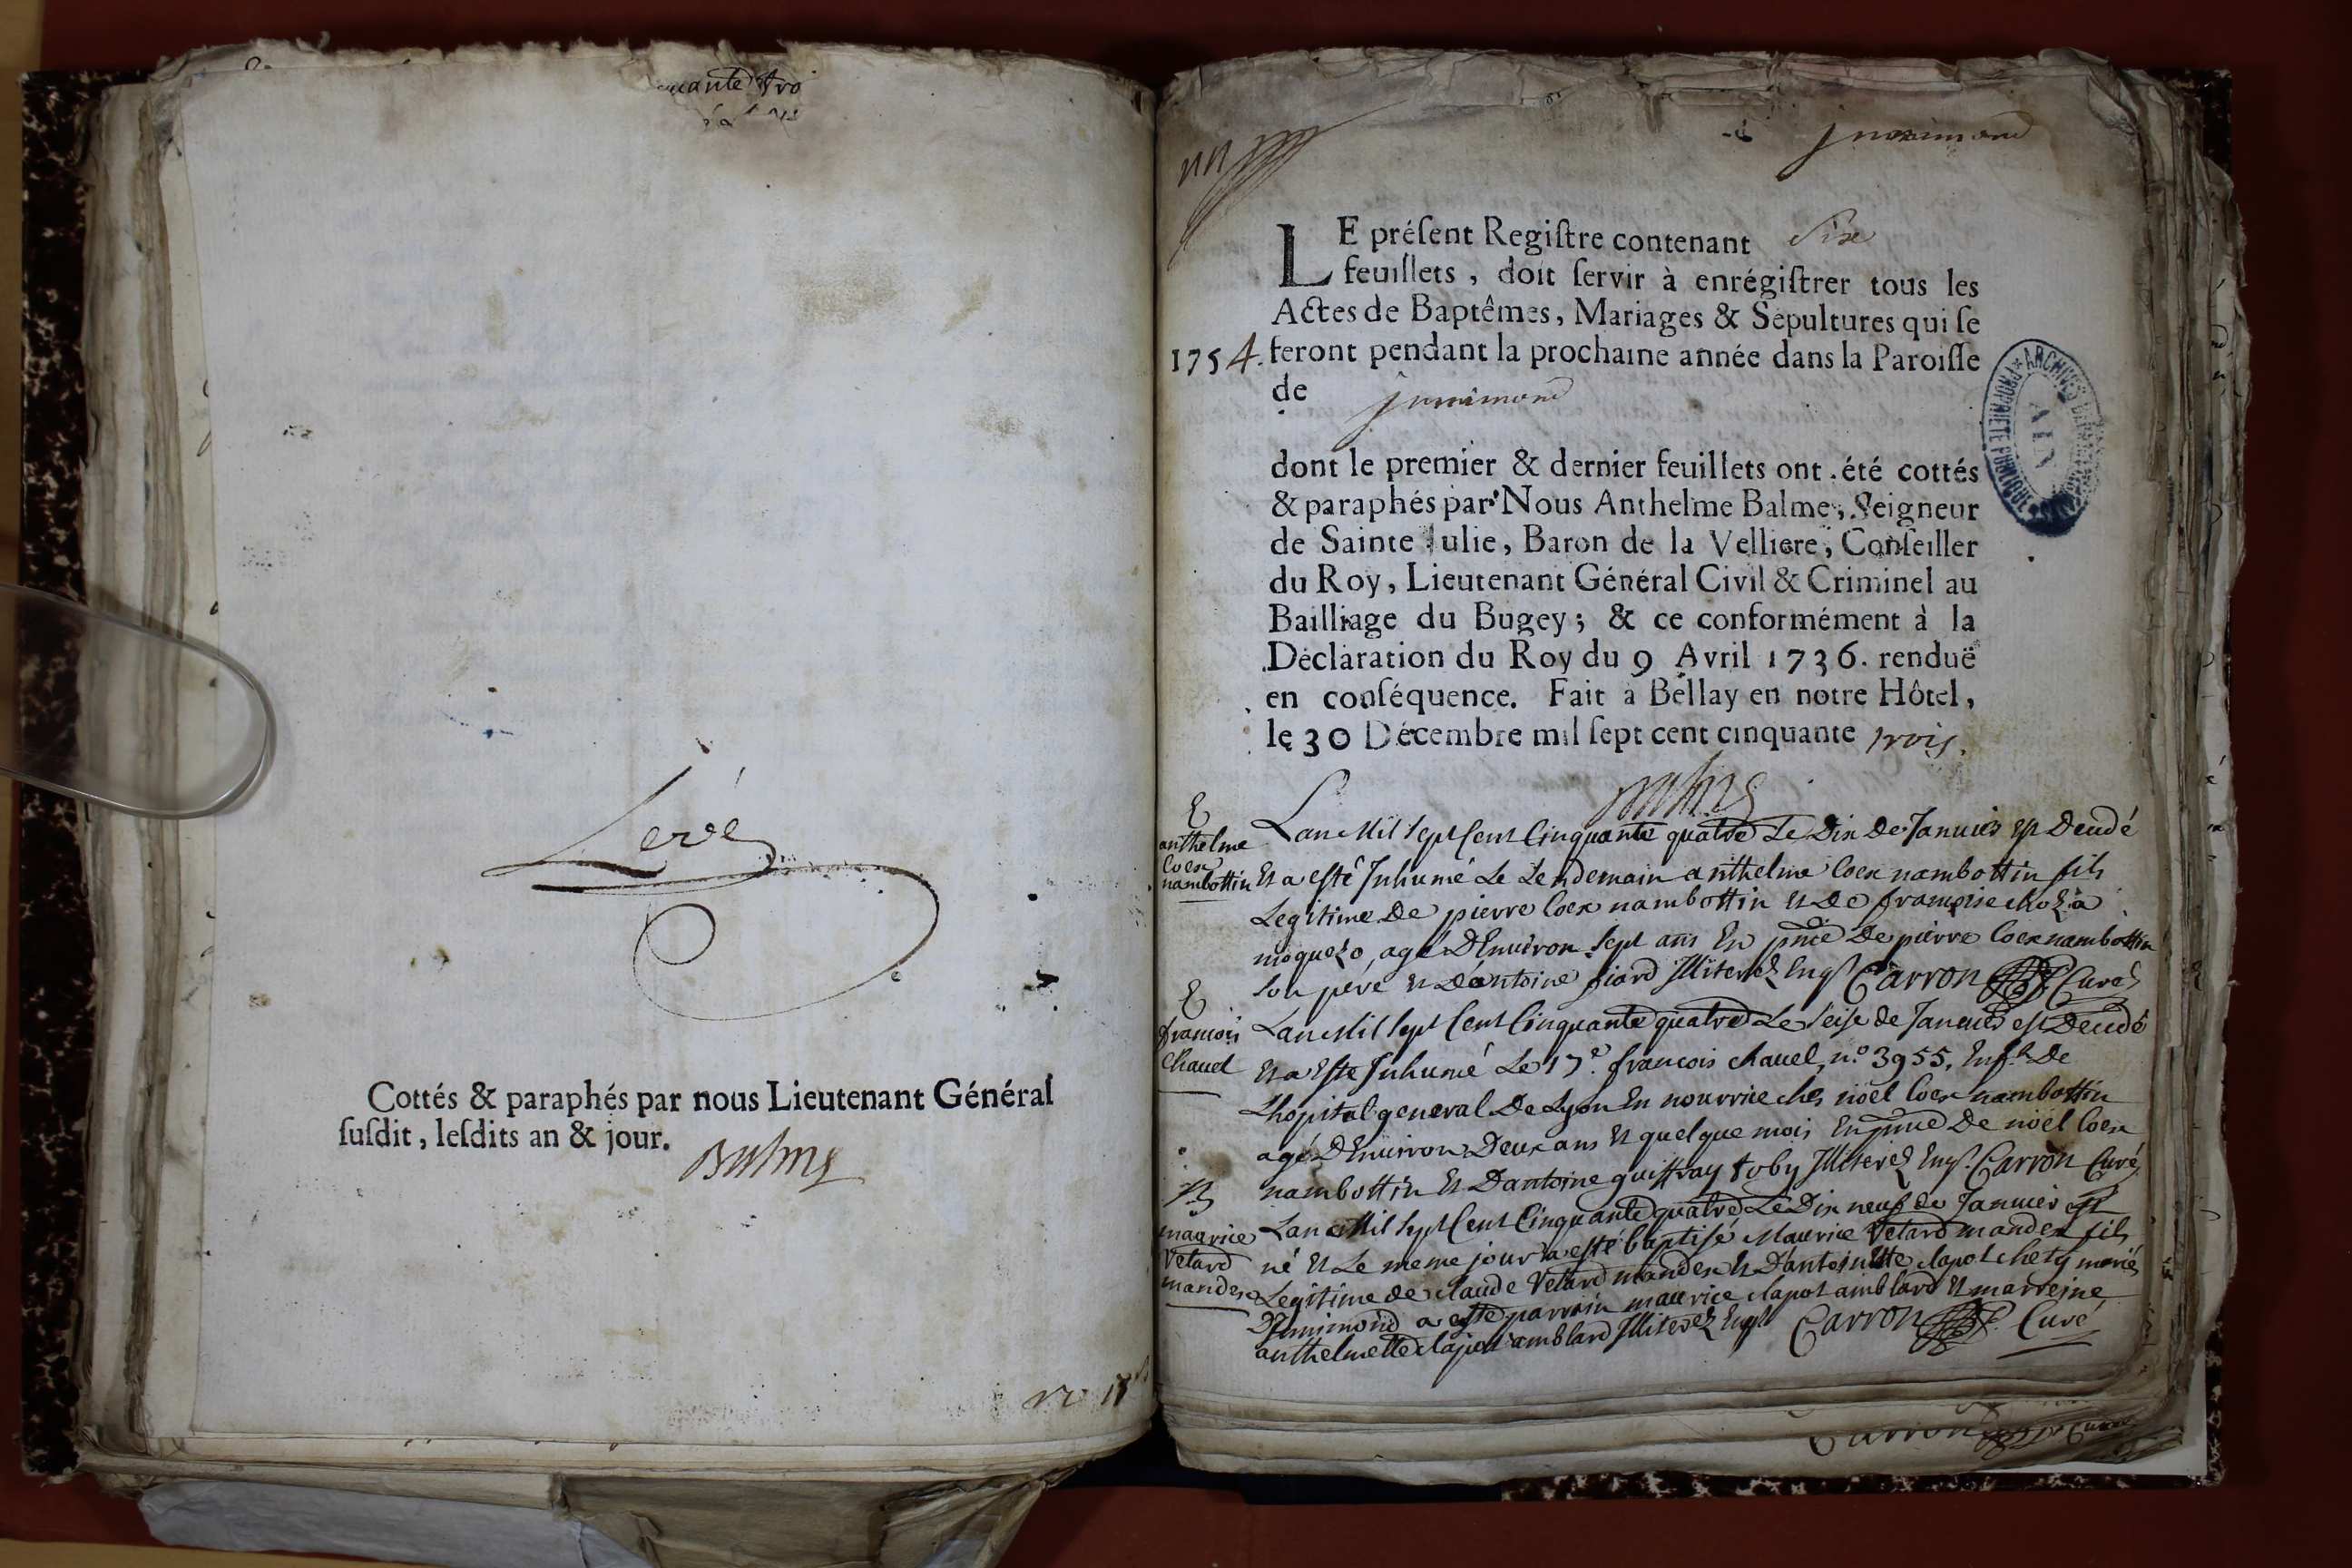 quante tro
Levé
Cottés & paraphés par nous Lieutenant Général
ſuſdit, leſdits an & jour.
Balme
Junimond
LE préſent Regiſtre contenant Six
feuillets, doit ſervir à enrégiſtrer tous les
Actes de Baptêmes, Mariages & Sépultures qui ſe
1754. feront pendant la prochaine année dans la Paroiſſe
de Junimond
dont le premier & dernier feuillets ont été cottés
& paraphés par Nous Anthelme Balme, Seigneur
de Sainte Julie, Baron de la Velliere, Conſeiller
du Roy, Lieutenant Général Civil & Criminel au
Bailliage du Bugey; & ce conformément à la
Déclaration du Roy du 9 Avril 1736. renduë
en conſéquence. Fait à Bellay en notre Hôtel,
le 30 Décembre mil ſept cent cinquante trois.
Balme
ARCHIVES AIN PROPRIÉTÉ PUBLIQUE
anthelme
Coex
nambottin
Lan Mil Sept Cent Cinquante quatre Le Dix De Januier est Decedé
Et a esté Inhumé Le Lendemain anthelme Coex nambottin fils
Legitime De pierre Coex nambottin Et De francoise
agé DEnuiron Sept ans En pnce De pierre Coex nambottin
Son pére Et Dantoine fiard Illiterez Enqs Carron Curé
francois
Chauel
Lan Mil Sept Cent Cinquante quatre Le Seise de Januier est Decedé
Et a Esté Inhumé Le 17e. francois Chauel, n.o 3955, Enft De
Lhopital general De Lyon En nourrice ches nöel Coex nambottin
agé DEnuiron Deux ans Et quelque mois En pnce De nöel Coex
nambottin Et Dantoine guiffray toby Illiterez Enqs. Carron Curé
B
maurice
Vetard
mandex
Lan Mil Sept Cent Cinquante quatre Le Dix neuf de Januier est
né Et Le meme jour a esté baptisé Maurice Vetard mandex fils
Legitime de claude Vetard mandex Et Dantoinette clapot mariés
DJnnimond a esté parrain maurice clapot amblard Et marreine
anthelmette clapot amblard Illiterez Enqs Carron Curé
Carron Curé